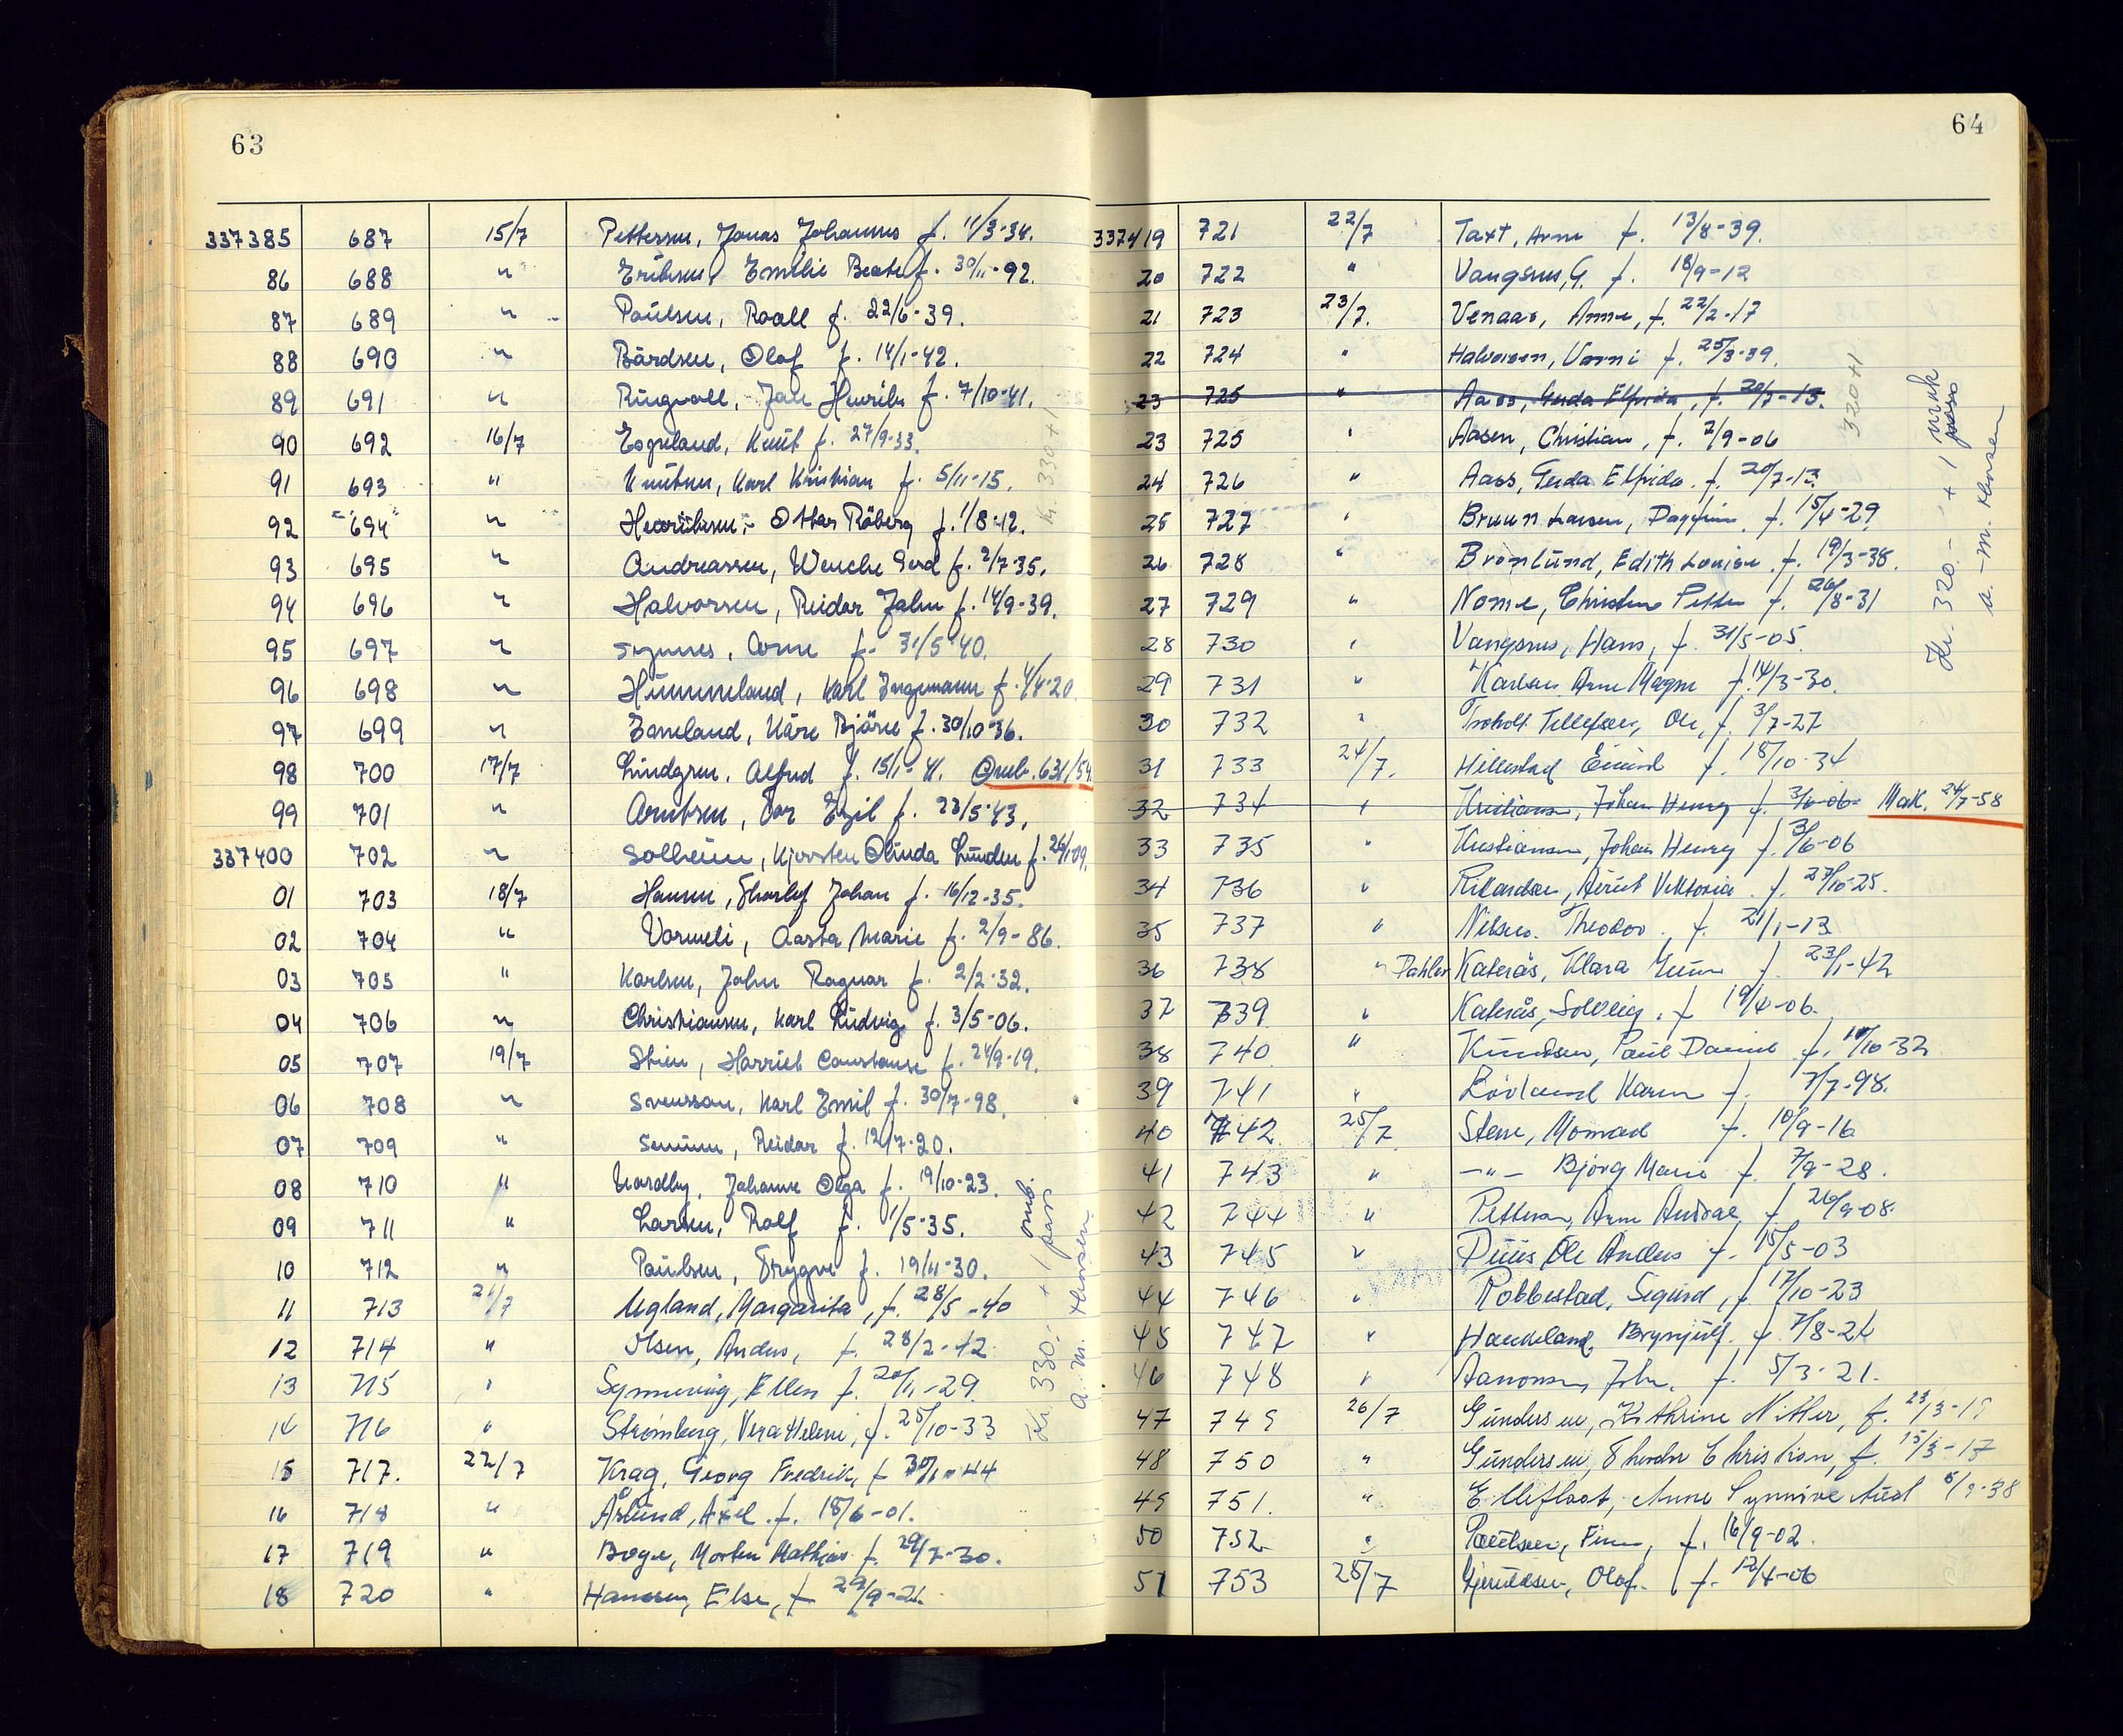 63
337385 687 15/7 Pettersen, Jonas Johannes f. 11/3-34.
86 688 " Eriksen, Emilie Beate f. 30/11-92.
87 689 " Paulsen, Roall f. 22/6-39.
88 690 " Bårdsen, Olof f. 14/1-42.
89 691 " Ringvoll, Jan Henrik f. 7/10-41.
90 692 16/7 Espeland, Knut f. 27/9-33.
91 693 " Knutsen, Karl Kristian f. 5/11-15.
92 "694" " Henriksen, Ottar Råberg f. 1/8-12.
93 695 " Andreassen, Wenche Gerd f. 2/7-35.
94 696 " Halvorsen, Reidar John f. 14/9-39.
95 697 " Synnes, Arne f. 31/5-40.
96 698 " Hummeland, Karl Ingemann f. 4/4-20.
97 699 " Esseland, Kåre Bjarne f. 30/10-36.
98 700 17/7 Lindgren, Alfred f. 15/1-41. Omb. 631/54
99 701 " Arntsen, Egil f. 23/5-43.
337400 702 " Solheim, Kjersten Olinda Lunden f. 26/1-09.
01 703 18/7 Hansen, Thorleif Johan f. 16/12-35.
02 704 " Vormeli, Aasta Marie f. 2/9-86.
03 705 " Karlsen, John Ragnar f. 2/2-32.
04 706 " Christiansen, Karl Ludvig f. 3/5-06.
05 707 19/7 Stien, Harriet Constanse f. 24/9-19.
06 708 " Svensson, Karl Emil f. 30/7-98.
07 709 " Senum, Reidar f. 12/7-20.
08 710 " Nordby, Johanne Olga f. 19/10-23.
09 711 " Larsen, Rolf f. 1/5-35.
10 712 " Paulsen, Trygve f. 19/11-30.
11 713 21/7 Ugland, Margarita, f. 28/5-40
12 714 " Olsen, Anders, f. 28/2-42
13 715 " Synnevig, Ellen f. 20/11-29.
14 716 " Strømberg, Vera Helene, f. 25/10-33
15 717. 22/7 Krag, Georg Fredrik, f 30/1-44
16 718 " Åslund, Axel. f. 18/6-01.
17 719 " Boge, Morten Mathias f. 29/7-30.
18 720 " Hanssen, Else, f 29/9-21.
Kr. 330+1
Kr. 330.- + 1 omb. pass
a. m. Hansen
64
337419 721 22/7 Taxt, Arne f. 13/8-39.
20 722 " Vangsnes, G. f. 18/9-12
21 723 23/7. Venaas, Anna, f. 22/2-17
22 724 " Halvorsen, Varni f. 25/3-39.
23 725 " Aass, Gerda Elfrida, f. 20/7-13.
23 725 " Aasen, Christian, f. 7/9-06
24 726 " Aass, Gerda Elfrida. f. 20/7-13.
25 727 " Bruun Larsen, Dagfinn. f. 15/4-29
26 728 " Brønlund, Edith Louise. f. 19/3-38.
27 729 " Nome, Christen Petter f. 26/8-31
28 730 " Vangsnes, Hans, f. 31/5-05.
29 731 " Karlsen Arne Magne f. 14/3-30.
30 732 " Tveholt Tellefsen, Ole, f. 3/7-27
31 733 24/7. Hillestad Eivind f. 18/10-34
32 734 " Kristiansen, Johan Henry f. 3/6-06 Mak. 24/7-58
33 735 " Kristiansen, Johan Henry f. 3/6-06
34 736 " Rikardsen, Viktoria. f. 27/10-25.
35 737 " Nilsen. Theodor. f. 21/1-13
36 738 " Dahler Katerås, Klara f. 23/1-42
37 739 " Katerås, Solveig. f 19/4-06.
38 740 " Knudsen, Paul Daniel f. 10/10-32
39 741 " Lövland Karen f. 7/7-98.
40 742 25/7 Stene, Momrad f. 10/9-16
41 743 " —"— Bjørg Marie f. 7/9-28.
42 744 " Petterson, Arne Andreas f 26/9-08.
43 745 " Duus Ole Anders f. 15/5-03
44 746 " Robbestad, Sigurd, f. 17/10-23
45 747 " Haukeland, Brynjulf. f. 7/8-21
46 748 " Aanonsen, John. f. 5/3-21.
47 749 26/7 Gundersen, Kathrine Nitter, f. 23/3-19
48 750 " Gundersen, Theodor Christian, f. 15/3-17
49 751. " Ellefloot, Anne Synnøve Aud 6/9-38
50 752 " Poulsen, Finn, f. 16/9-02.
51 753 28/7 Gjeruldsen, Olaf. f. 12/4-06
320+1
Kr. 320.- + 1 vrak pass
a.-m. Hansen